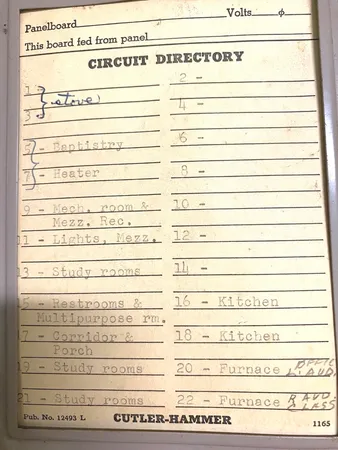 Panelboard Volts φ
This board fed from panel
CIRCUIT DIRECTORY
1 } stove 2 -
3 4 -
5 - Baptistry 6 -
7 - Heater 8 -
9 - Mech. room & 10 -
Mezz. Rec.
11 - Lights, Mezz. 12 -
13 - Study rooms 14 -
15 - Restrooms & 16 - Kitchen
Multipurpose rm.
17 - Corridor & 18 - Kitchen
Porch
19 - Study rooms 20 - Furnace OFFIC
L. AUD.
21 - Study rooms 22 - Furnace R AUD.
CLASS
Pub. No. 12493 L CUTLER-HAMMER 1165